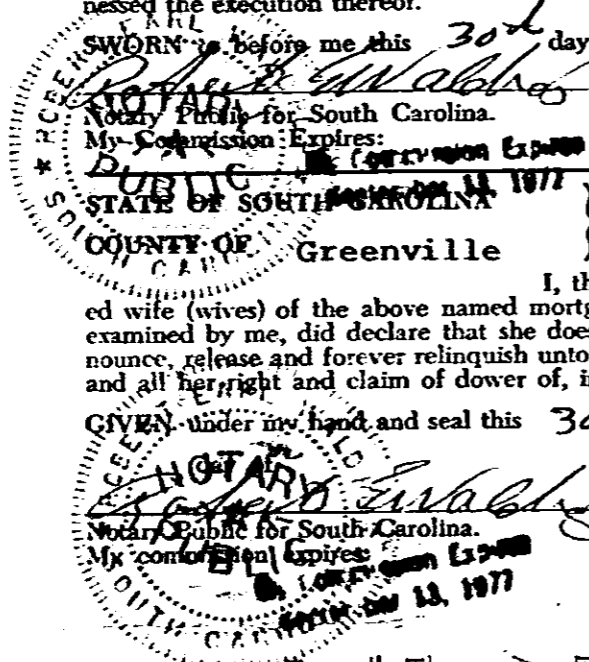 nessed the execution thereof.
SWORN to before me this 30th day
Notary Public for South Carolina.
My Commission Expires:
My Commission Expires
13, 1977
STATE OF SOUTH CAROLINA
COUNTY OF Greenville
I, th
ed wife (wives) of the above named mortg
examined by me, did declare that she does
nounce, release and forever relinquish unto
and all her right and claim of dower of, i
GIVEN under my hand and seal this 30
day of
Notary Public for South Carolina.
My commission expires:
My Commission Expires
13, 1977
NOTARY
PUBLIC
SOUTH CAROLINA
NOTARY
PUBLIC
SOUTH CAROLINA